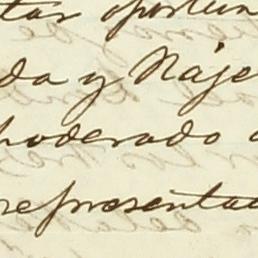 tar oportun
da y Naje
poderado a
representac